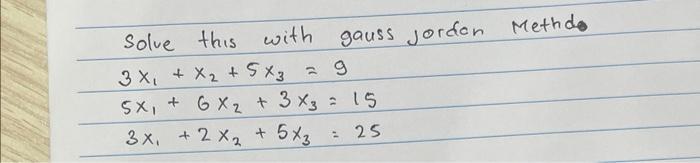 Solve this with gauss jordon Methdo
3x₁ + x₂ + 5x₃ = 9
5x₁ + 6x₂ + 3x₃ = 15
3x₁ + 2x₂ + 5x₃ = 25